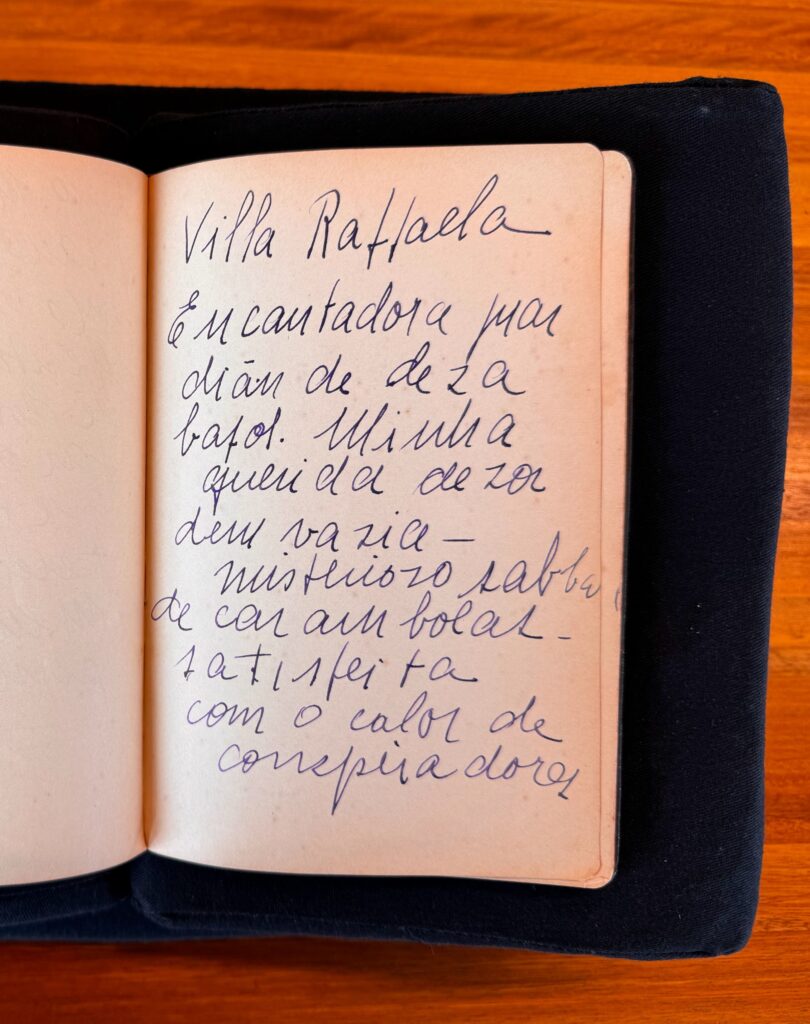 Villa Raffaela
Encantadora guar
diãn de desa
bafos. Minha
querida desor
dem vazia –
misterioso
de carambolas –
satisfeita
com o calor de
conspiradores